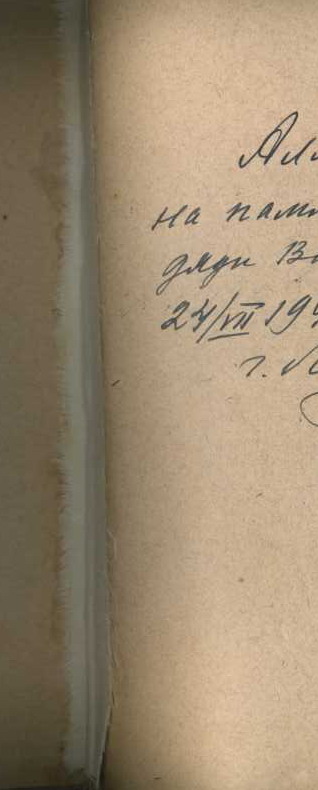 Алл
на памя
дяди Ва
24/VII 194
г. М